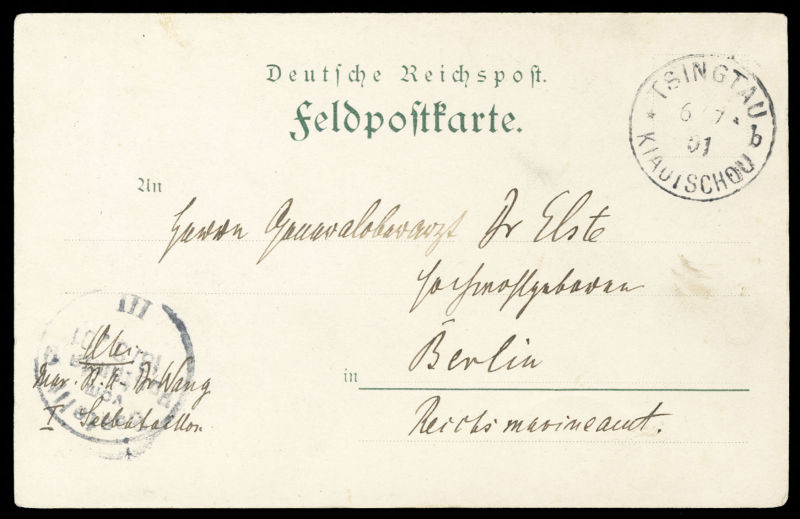 Deutsche Reichspost.
Feldpostkarte.
TSINGTAU
* 6/7 * b
01
KIAUTSCHOU
An
Herrn Generaloberarzt Dr Elste
Hochwohlgeboren
in Berlin
Reichsmarineamt.
III
Mar.
I Seebataillon